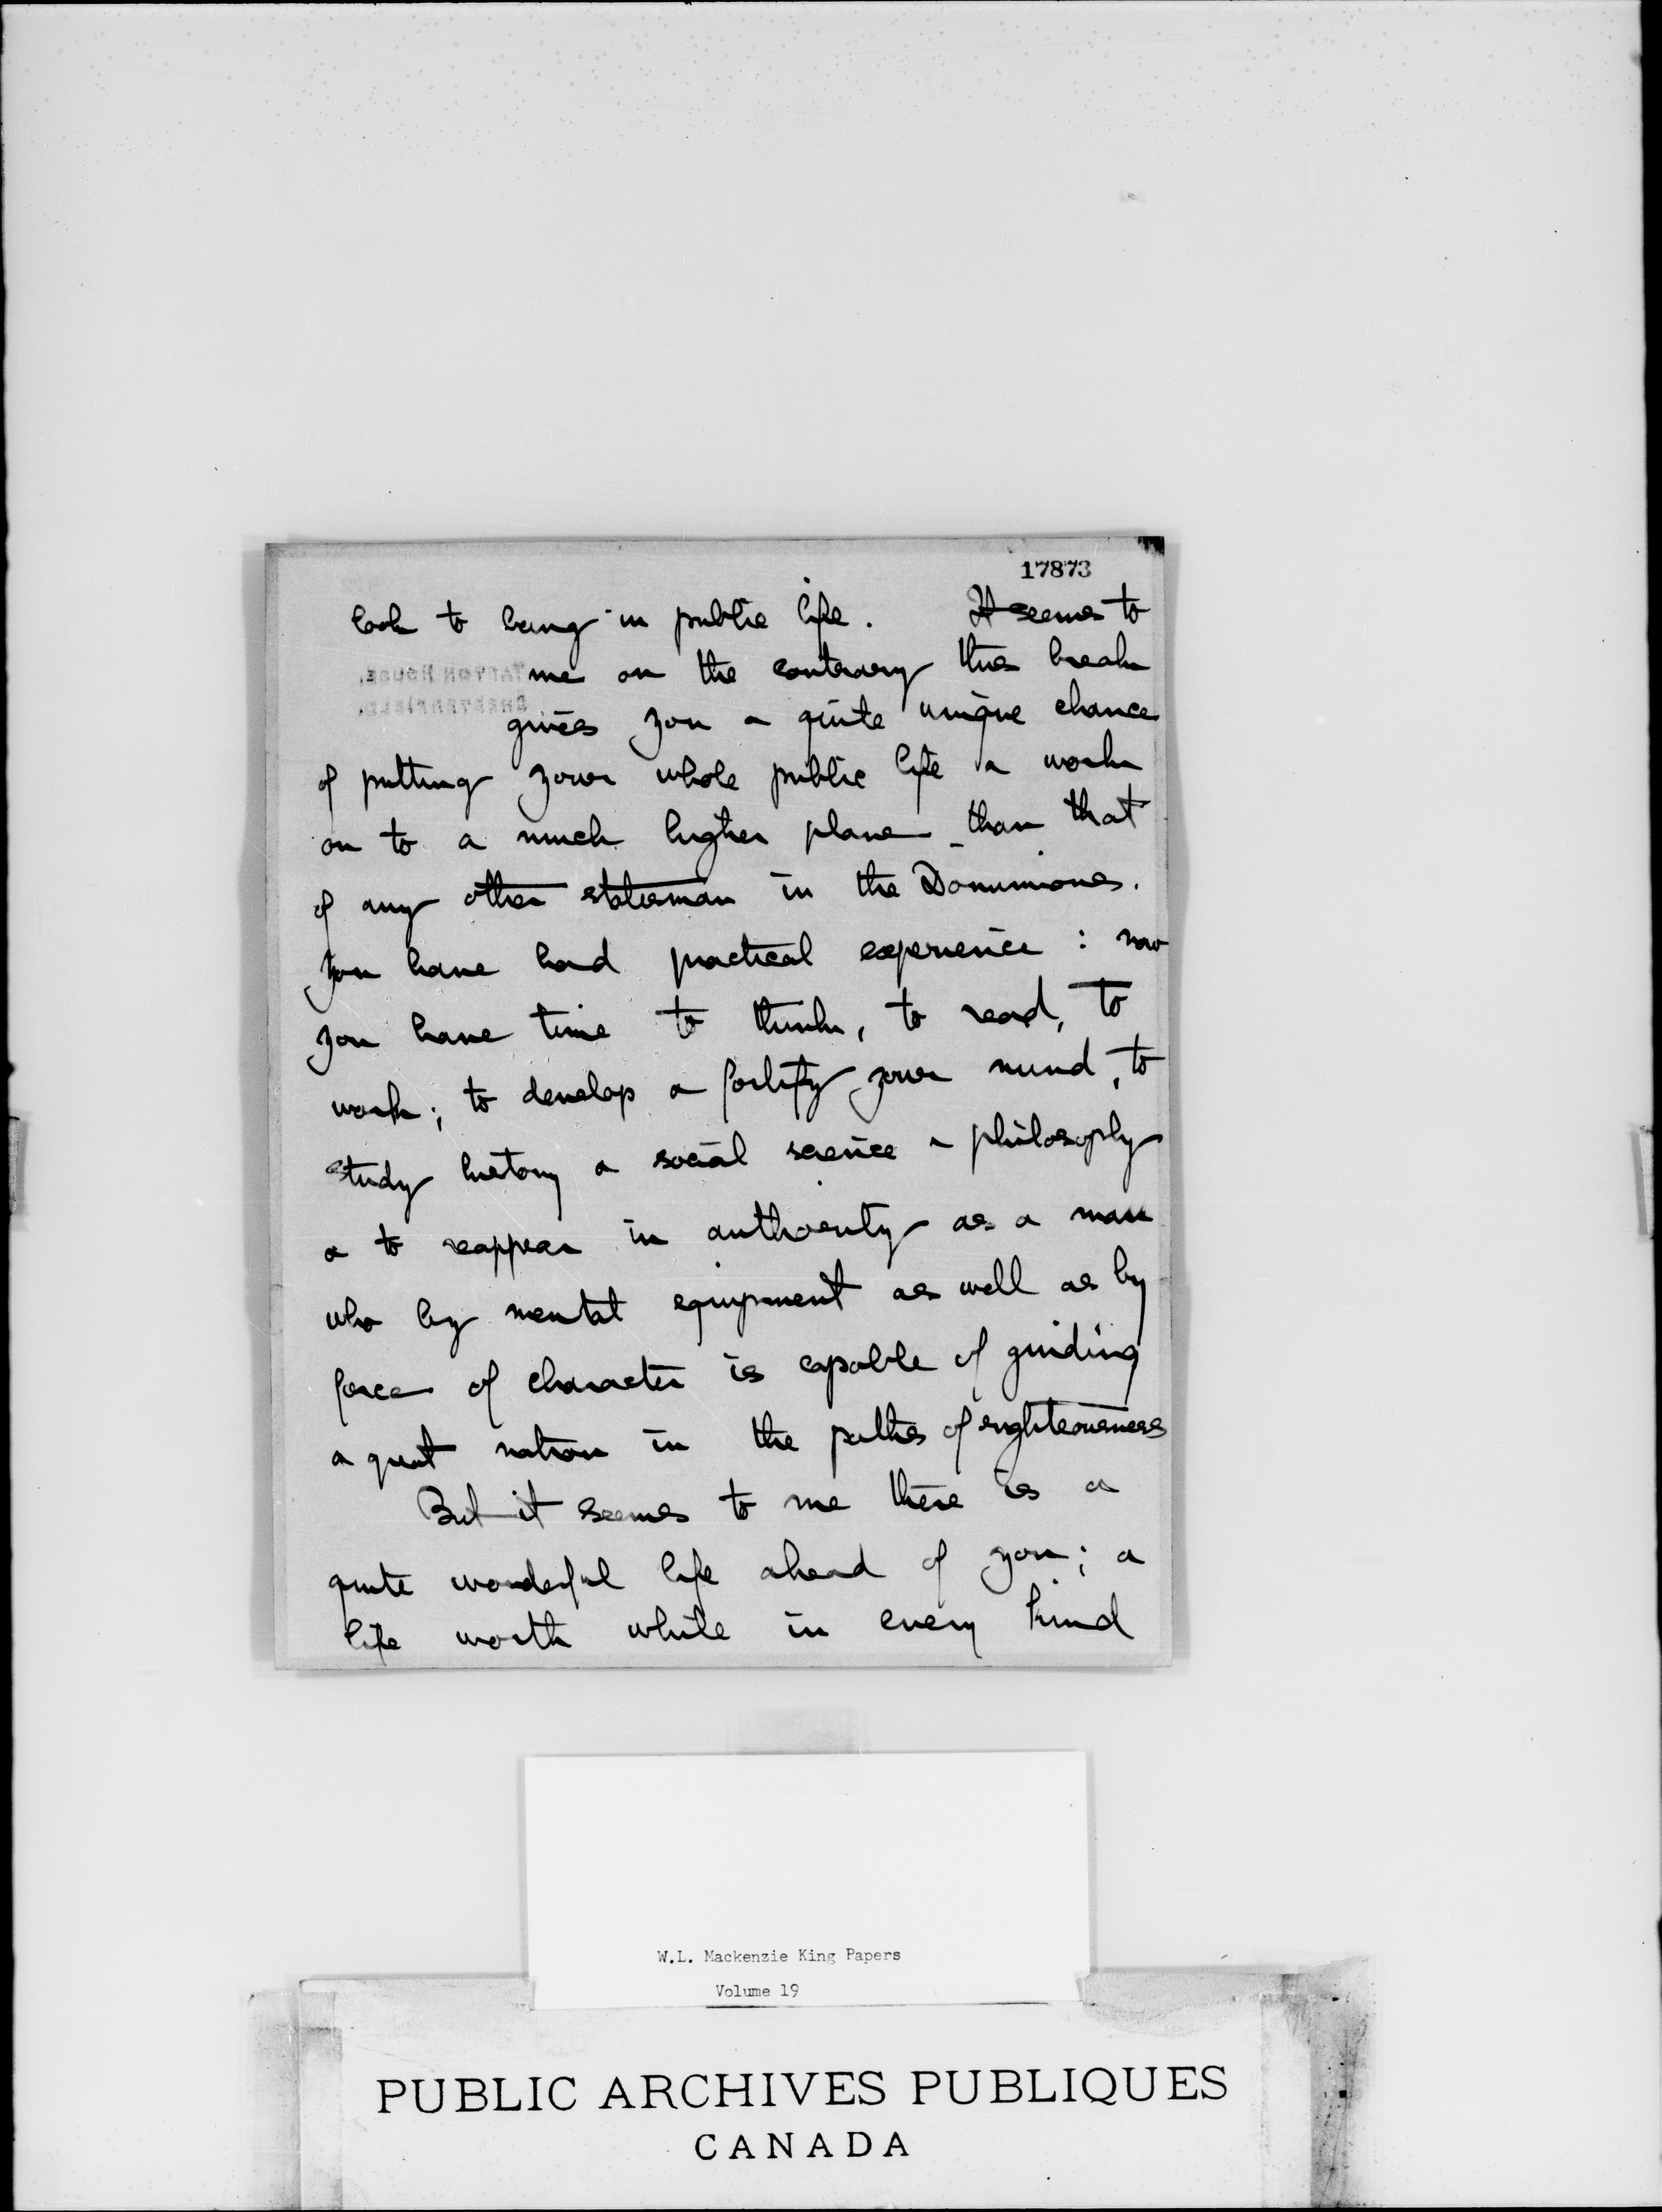 17873
look to being in public life. It seems to
me on the contrary this break
TAPTON HOUSE,
CHESTERFIELD.
gives you a quite unique chance
of putting your whole public life & work
on to a much higher plane than that
of any other statesman in the Dominions.
You have had practical experience: now
you have time to think, to read, to
work; to develop & fortify your mind, to
study history & social science & philosophy
& to reappear in authority as a man
who by mental equipment as well as by
force of character is capable of guiding
a great nation in the paths of righteousness
But it seems to me there is a
quite wonderful life ahead of you; a
life worth while in every kind
W.L. Mackenzie King Papers
Volume 19
PUBLIC ARCHIVES PUBLIQUES
CANADA